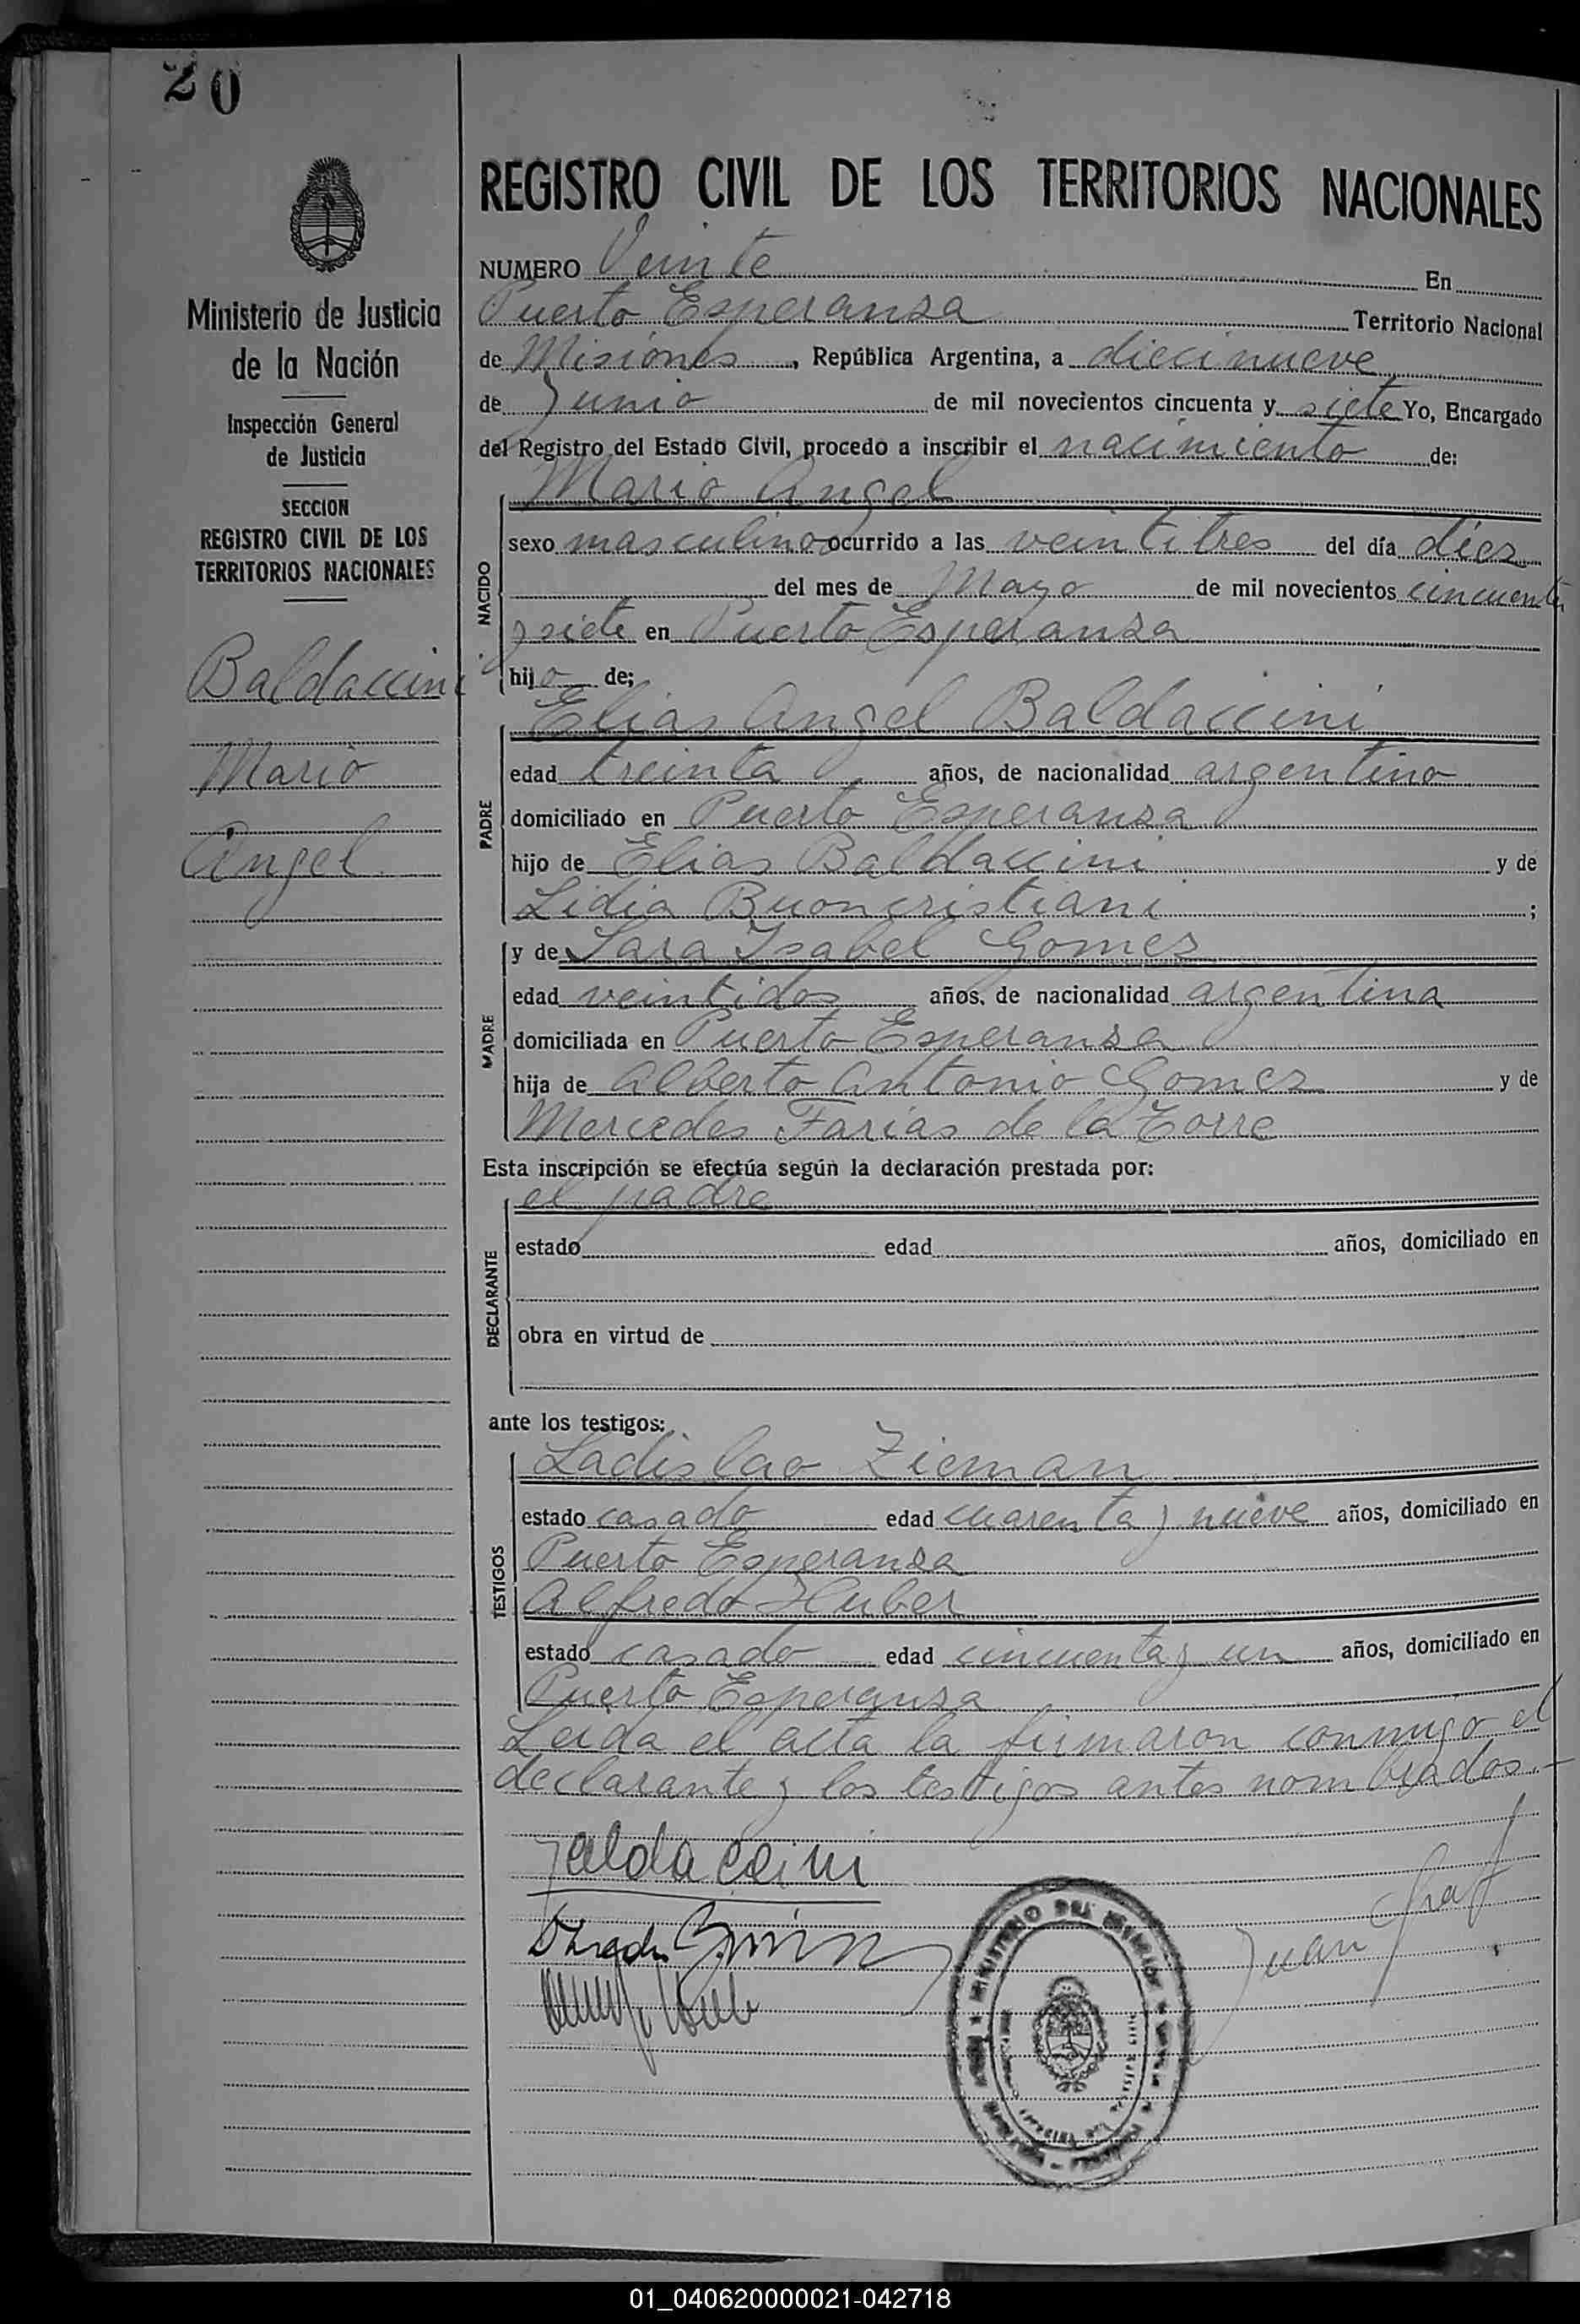 20
Ministerio de Justicia
de la Nación
Inspección General
de Justicia
SECCION
REGISTRO CIVIL DE LOS
TERRITORIOS NACIONALES
Baldaccini
Mario
Angel
REGISTRO CIVIL DE LOS TERRITORIOS NACIONALES
NUMERO Veinte En
Puerto Esperanza Territorio Nacional
de Misiones, República Argentina, a diecinueve
de Junio de mil novecientos cincuenta y siete Yo, Encargado
del Registro del Estado Civil, procedo a inscribir el nacimiento de:
Mario Angel
NACIDO
sexo masculino ocurrido a las veintitres del día diez
del mes de Mayo de mil novecientos cincuenta
y siete en Puerto Esperanza
hijo de;
Elias Angel Baldaccini
PADRE
edad treinta años, de nacionalidad argentino
domiciliado en Puerto Esperanza
hijo de Elias Baldaccini y de
Lidia Buoncristiani ;
y de Sara Isabel Gomez
MADRE
edad veintidos años, de nacionalidad argentina
domiciliada en Puerto Esperanza
hija de Alberto Antonio Gomez y de
Mercedes Farias de la Torre
Esta inscripción se efectúa según la declaración prestada por:
el padre
DECLARANTE
estado edad años, domiciliado en
obra en virtud de
ante los testigos:
Ladislao Zieman
TESTIGOS
estado casado edad cuarenta y nueve años, domiciliado en
Puerto Esperanza
Alfredo Huber
estado casado edad cincuenta y un años, domiciliado en
Puerto Esperanza
Leida el acta la firmaron conmigo el
declarante y los testigos antes nombrados.-
Baldaccini
Juan Graf
MINISTERIO DEL INTERIOR
01_040620000021-042718